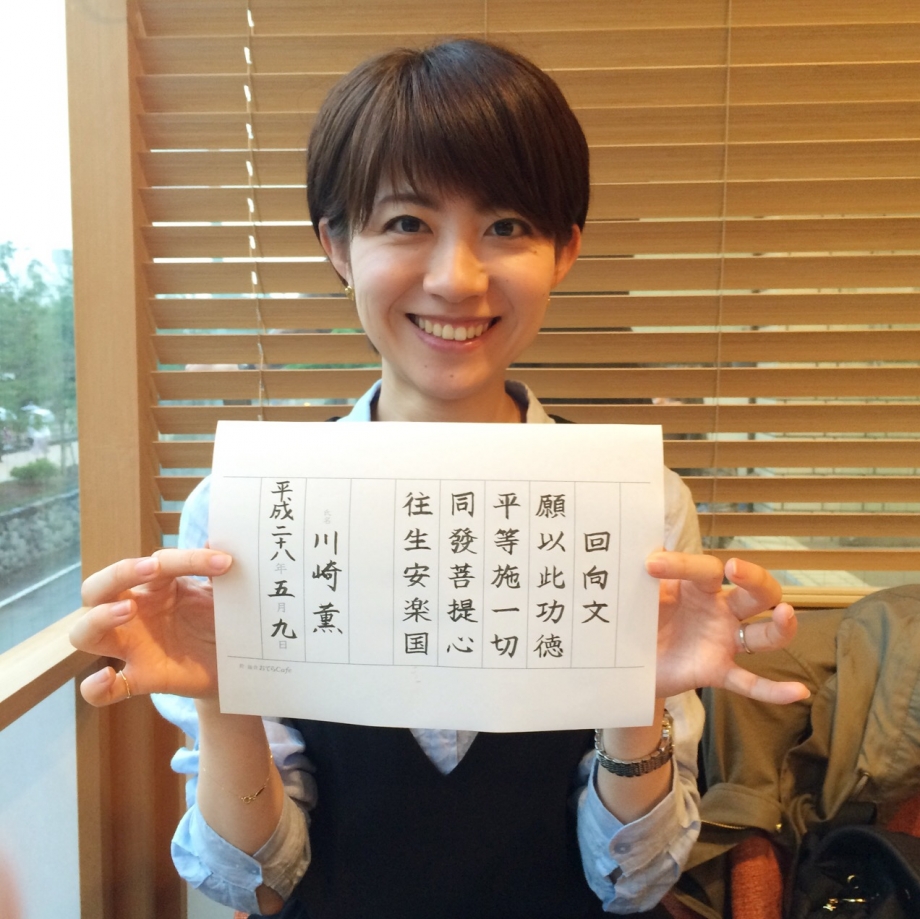 回向文
願以此功徳
平等施一切
同發菩提心
往生安楽国
氏名 川崎 薫
平成二十八年五月九日